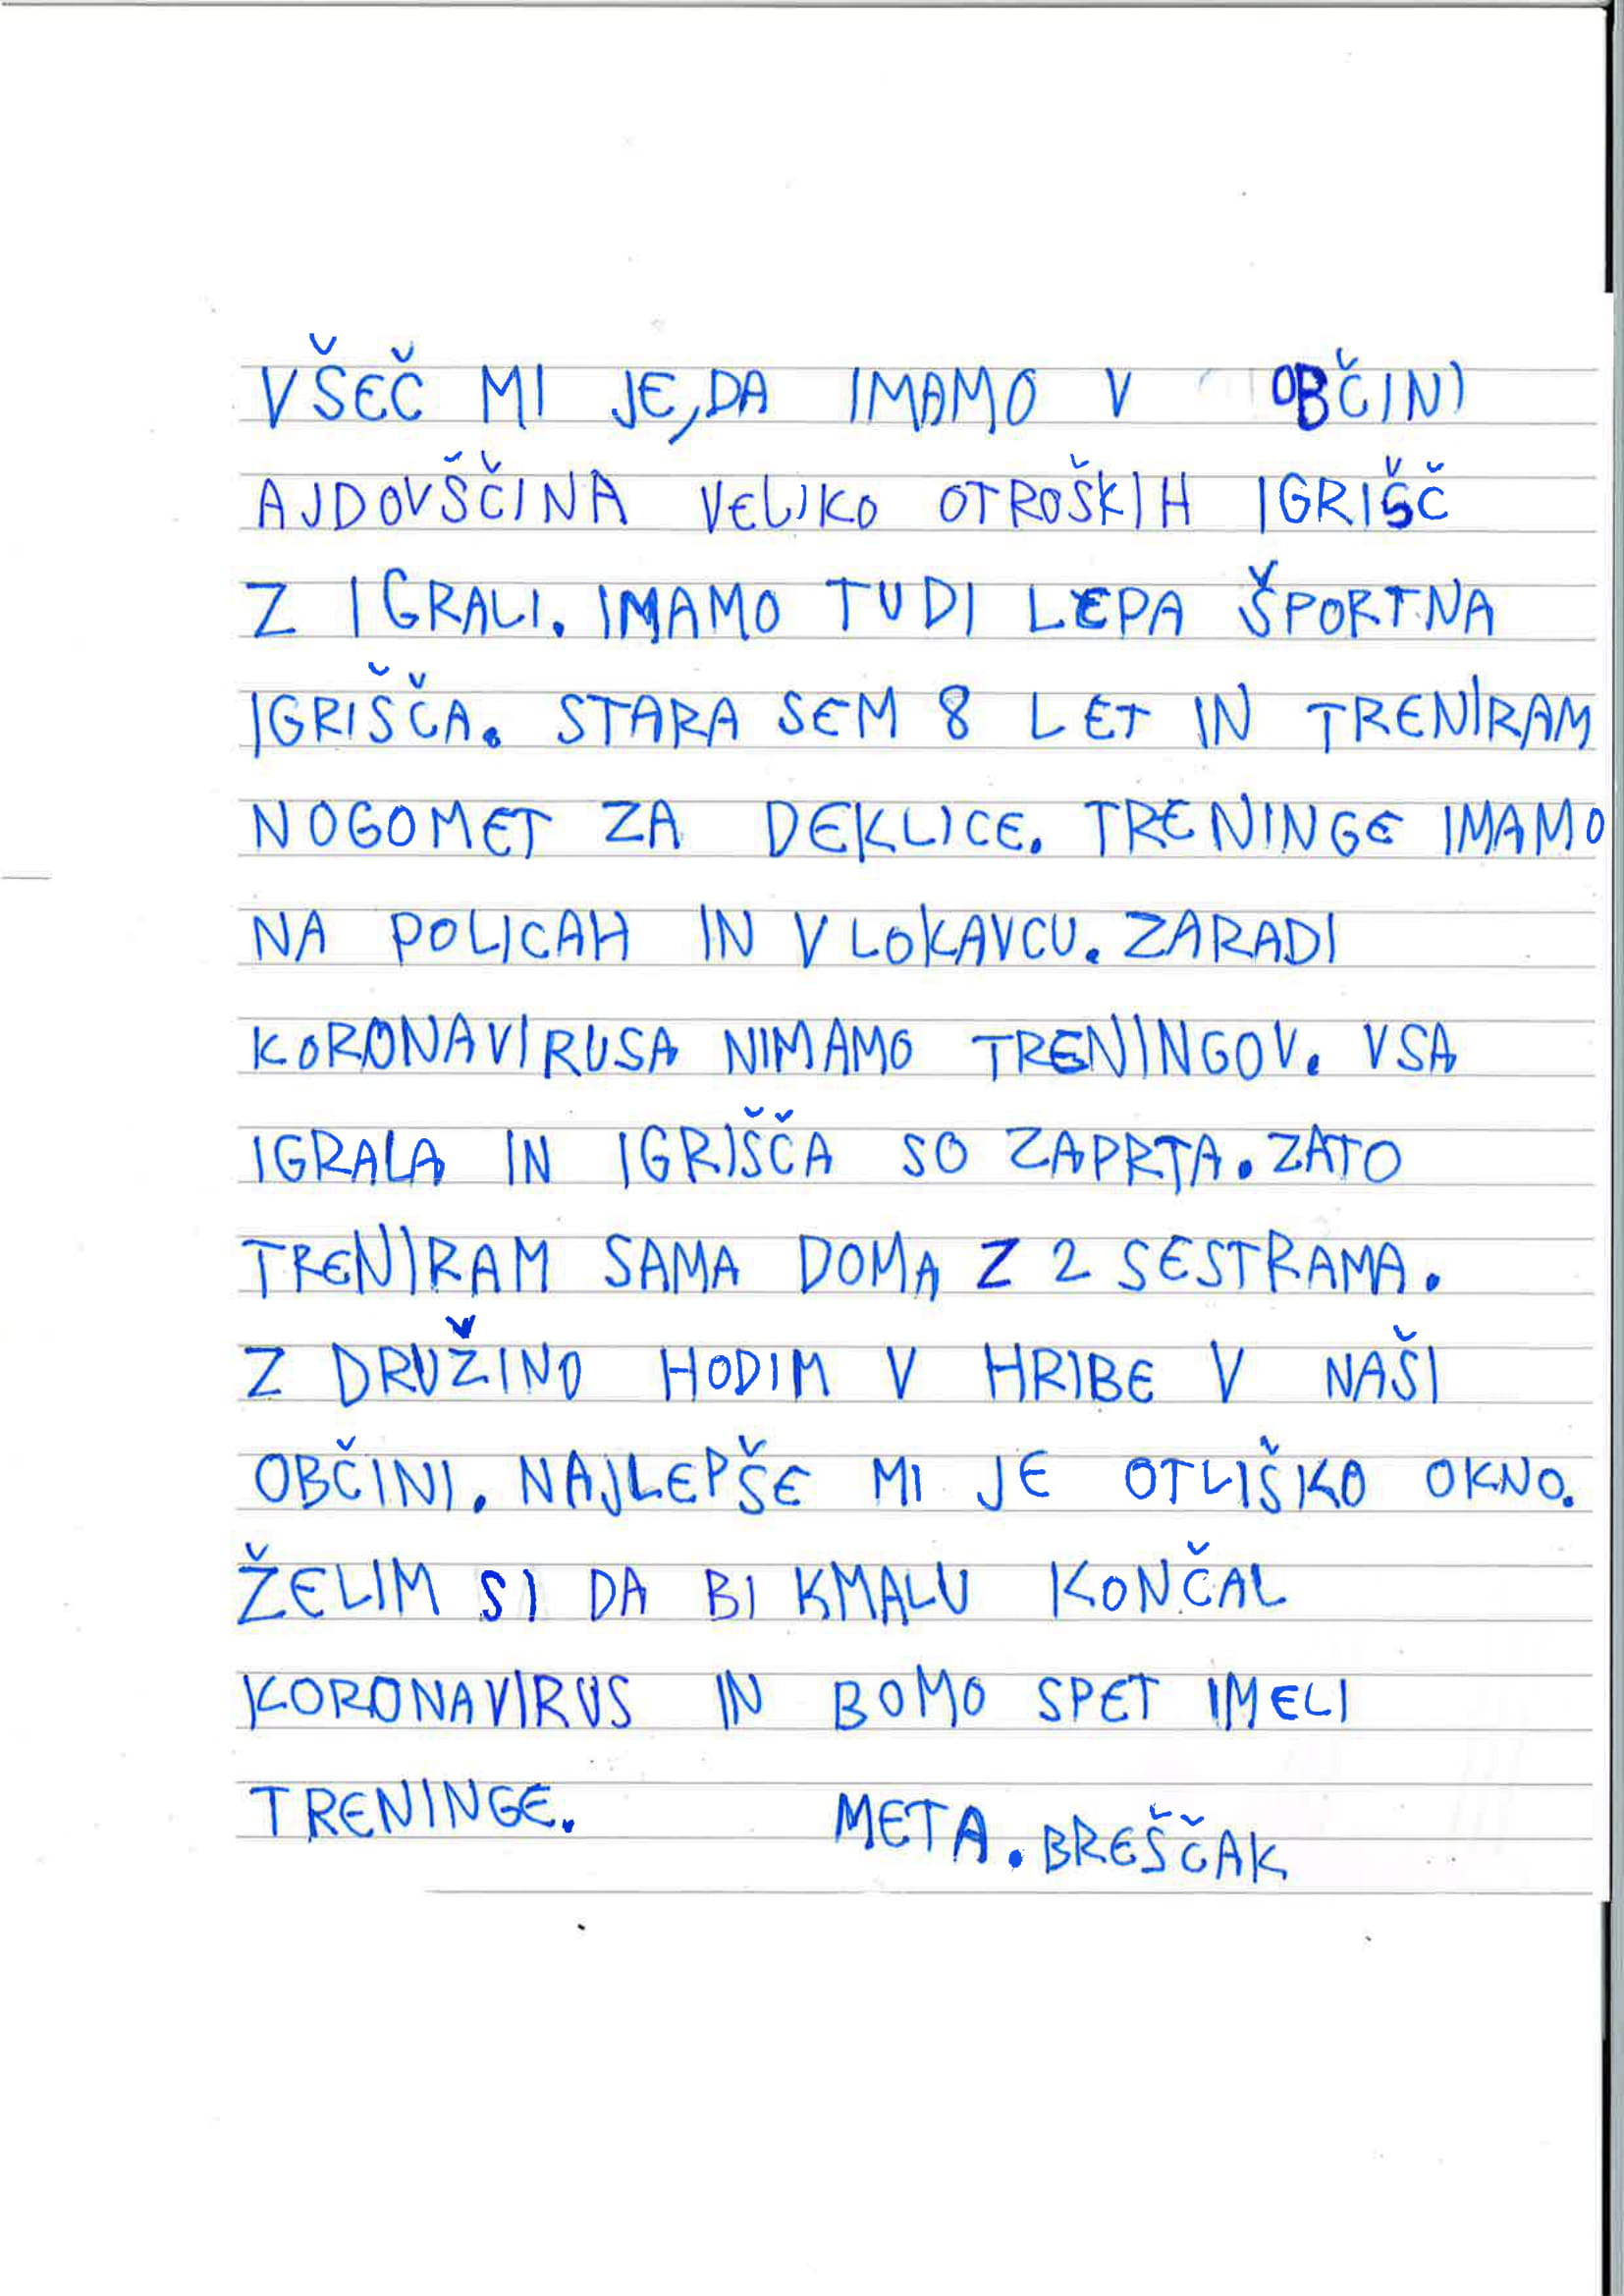 VŠEČ MI JE, DA IMAMO V OBČINI
AJDOVŠČINA VELIKO OTROŠKIH IGRIŠČ
Z IGRALI. IMAMO TUDI LEPA ŠPORTNA
IGRIŠČA. STARA SEM 8 LET IN TRENIRAM
NOGOMET ZA DEKLICE. TRENINGE IMAMO
NA POLICAH IN V LOKAVCU. ZARADI
KORONAVIRUSA NIMAMO TRENINGOV. VSA
IGRALA IN IGRIŠČA SO ZAPRTA. ZATO
TRENIRAM SAMA DOMA Z 2 SESTRAMA.
Z DRUŽINO HODIM V HRIBE V NAŠI
OBČINI. NAJLEPŠE MI JE OTLIŠKO OKNO.
ŽELIM SI DA BI KMALU KONČAL
KORONAVIRUS IN BOMO SPET IMELI
TRENINGE. META. BREŠČAK